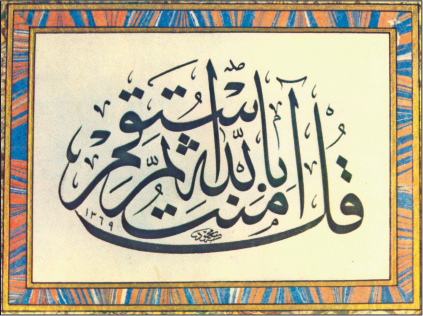 قُل آمَنتُ بِاللّهِ ثُمَّ اسْتَقِم
١٣٦٩